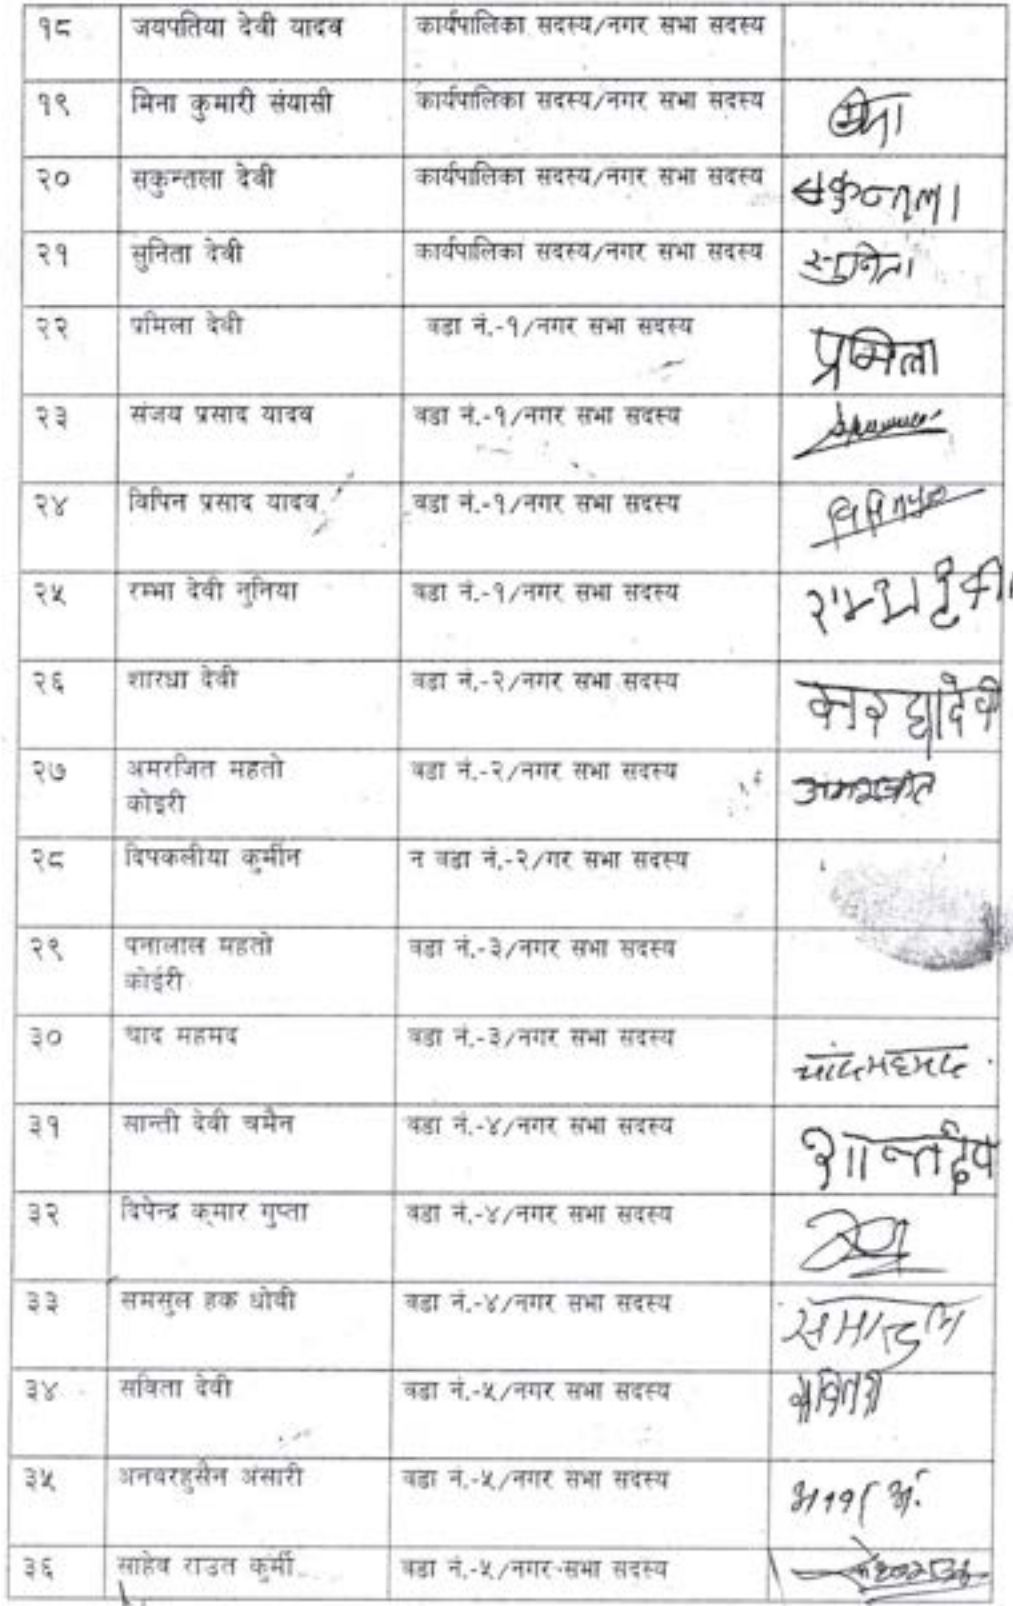 १८ जयपतिया देवी यादव कार्यपालिका सदस्य/नगर सभा सदस्य
१९ मिना कुमारी संयासी कार्यपालिका सदस्य/नगर सभा सदस्य
२० सकुन्तला देवी कार्यपालिका सदस्य/नगर सभा सदस्य सकुन्तला
२१ सुनिता देवी कार्यपालिका सदस्य/नगर सभा सदस्य सुनिता
२२ प्रमिला देवी वडा नं.-१/नगर सभा सदस्य प्रमिला
२३ संजय प्रसाद यादव वडा नं.-१/नगर सभा सदस्य
२४ विपिन प्रसाद यादव वडा नं.-१/नगर सभा सदस्य
२५ रम्भा देवी नुनिया वडा नं.-१/नगर सभा सदस्य
२६ शारधा देवी वडा नं.-२/नगर सभा सदस्य
२७ अमरजित महतो वडा नं.-२/नगर सभा सदस्य अमरजीत
कोइरी
२८ दिपकलीया कुर्मीन न वडा नं.-२/गर सभा सदस्य
२९ पनालाल महतो वडा नं.-३/नगर सभा सदस्य
कोईरी
३० चाद महमद वडा नं.-३/नगर सभा सदस्य चांदमहमद
३१ सान्ती देवी चमैन वडा नं.-४/नगर सभा सदस्य
३२ दिपेन्द्र कुमार गुप्ता वडा नं.-४/नगर सभा सदस्य
३३ समसुल हक धोवी वडा नं.-४/नगर सभा सदस्य
३४ सविता देवी वडा नं.-५/नगर सभा सदस्य
३५ अनवरहुसैन अंसारी वडा नं.-५/नगर सभा सदस्य
३६ साहेव राउत कुर्मी वडा नं.-५/नगर सभा सदस्य